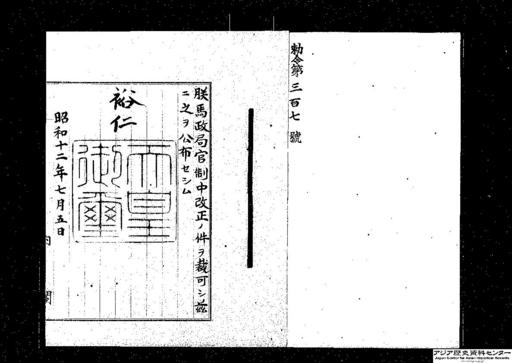 勅令第三百七號
朕馬政局官制中改正ノ件ヲ裁可シ茲
ニ之ヲ公布セシム
裕仁
天皇御璽
昭和十二年七月五日
内閣
アジア歴史資料センター
Japan Center for Asian Historical Records